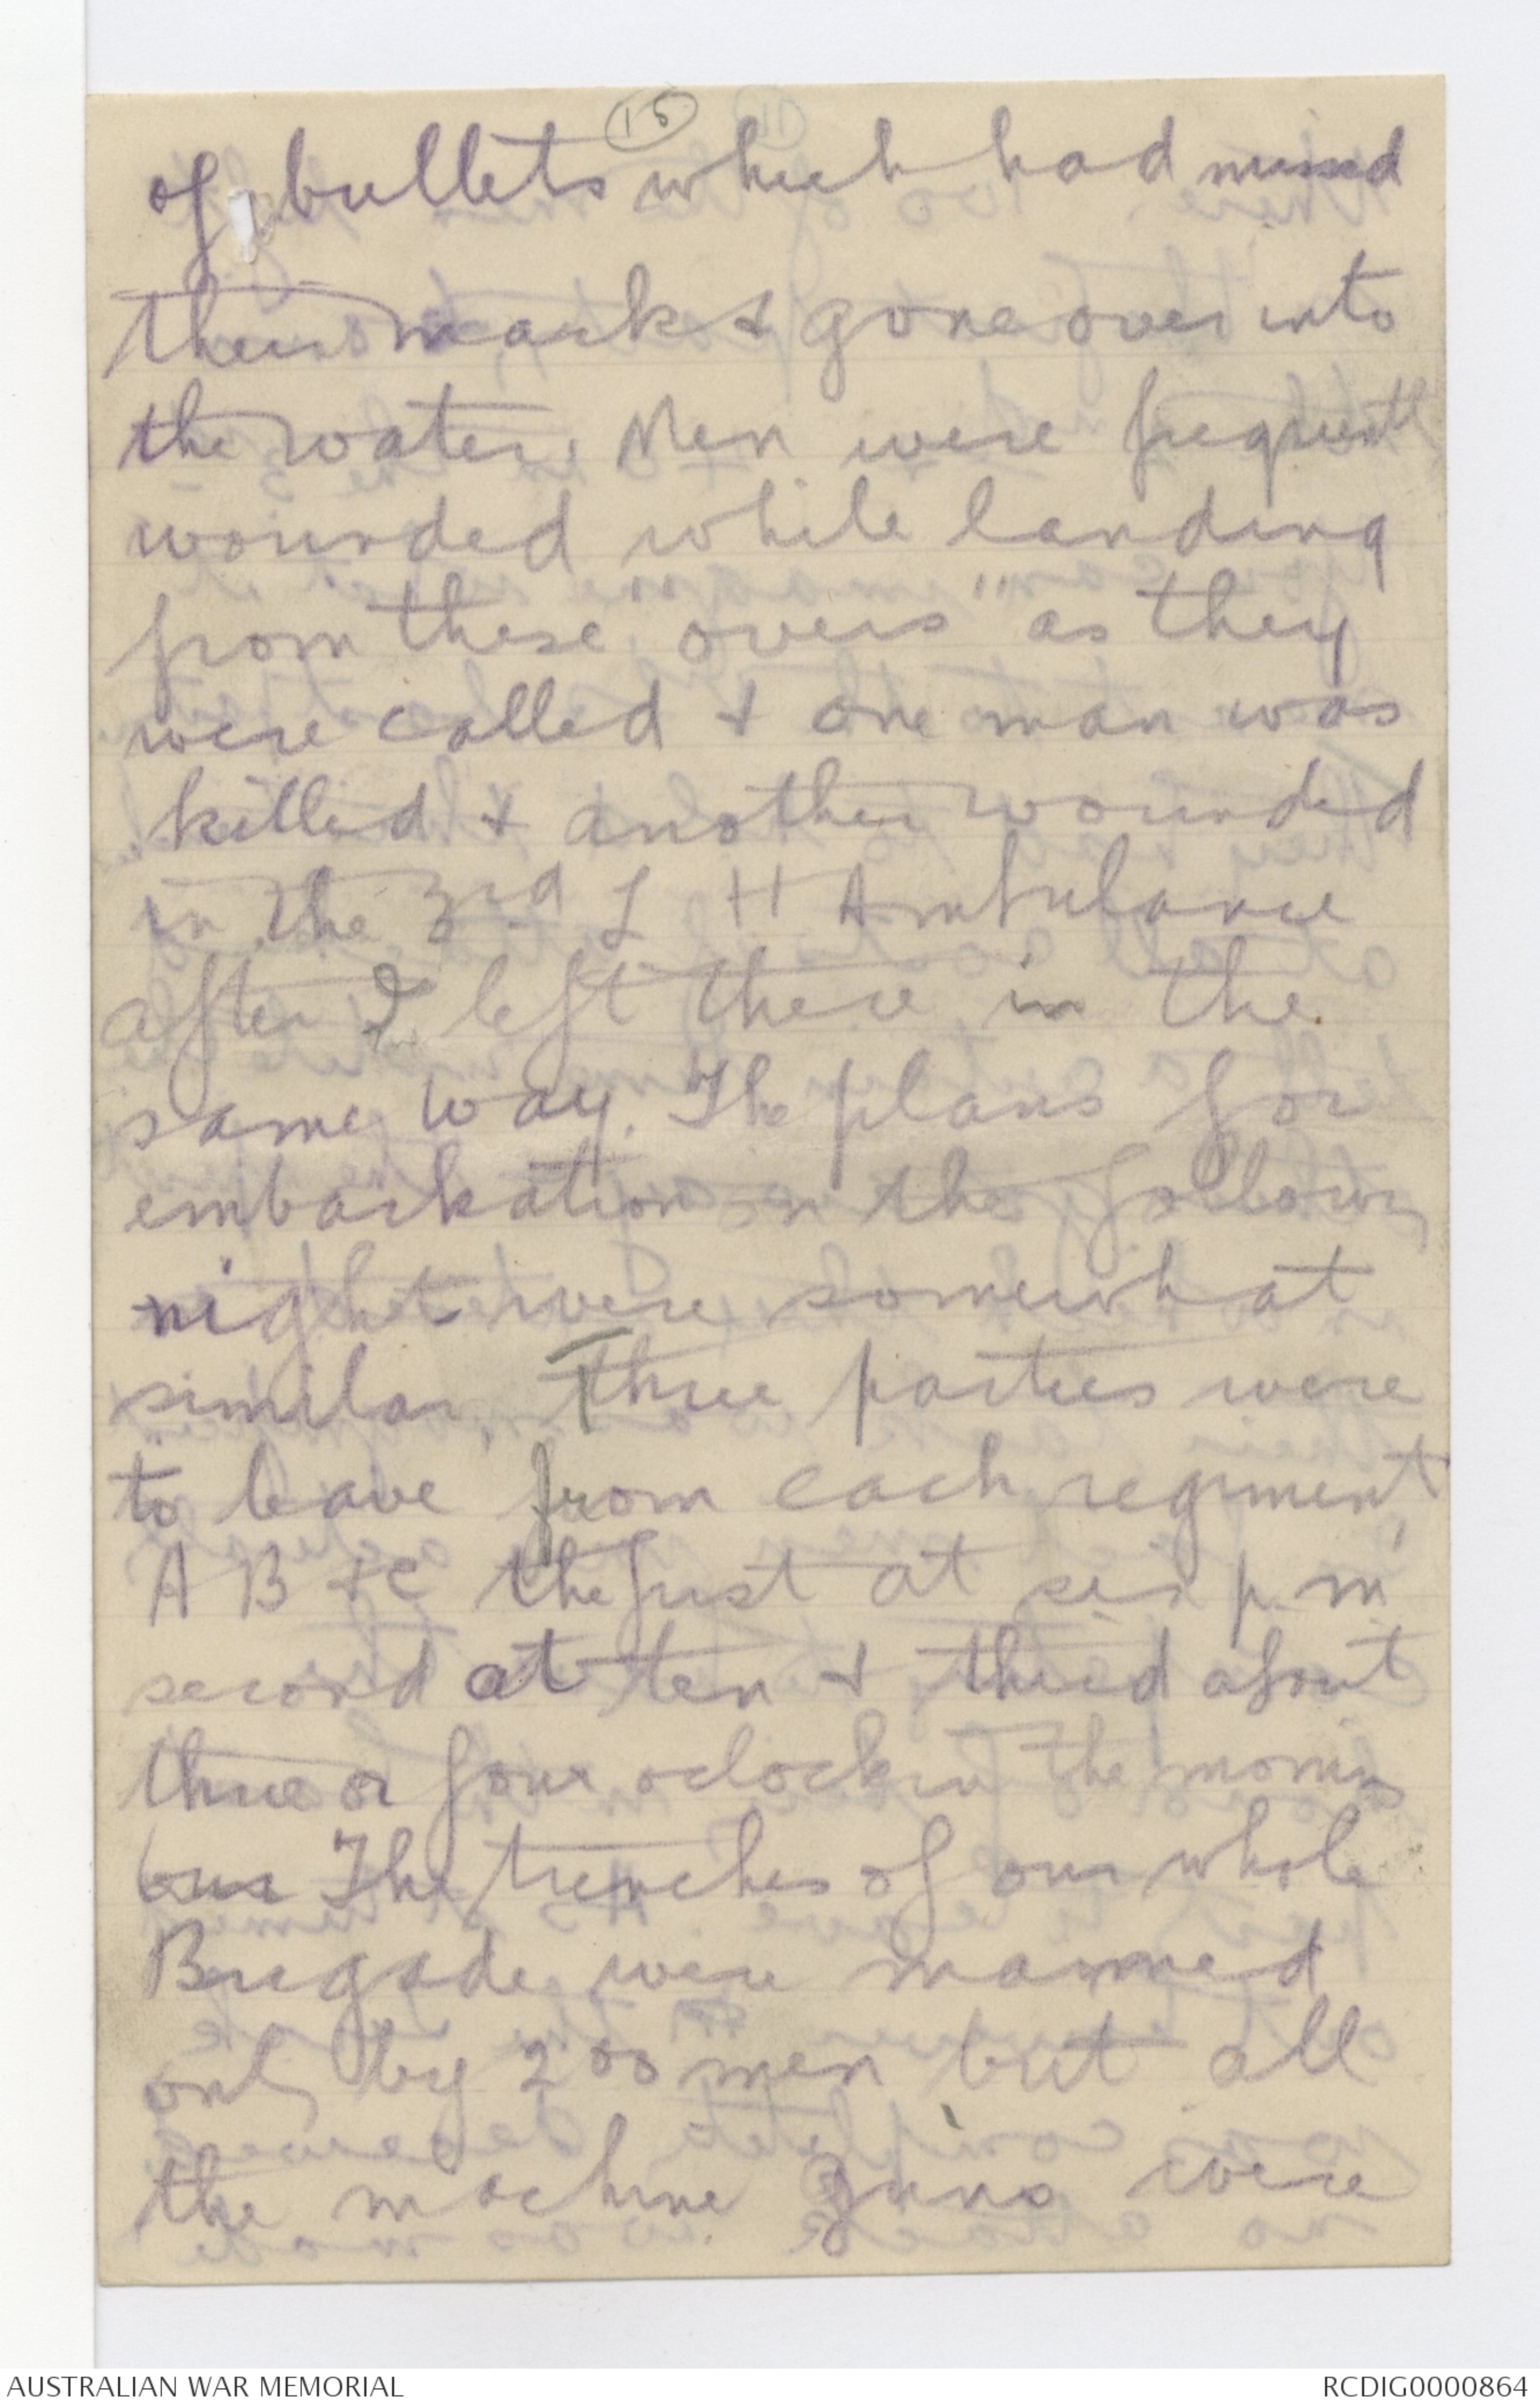 15
of bullets which had missed
their mark & gone over into
the water. Men were frequentl
wounded while landing
from these "overs" as they
were called & one man was
killed & another wounded
in the 3rd L H Ambulance
after I left there in the
same way. The plans for
embarkation on the followin
night were somewhat
similar, Three parties were
to leave from each regiment,
A B & C the first at six p.m
second at ten & third about
three or four oclock in the mornin
The trenches of our whole
Brigade were manned
only by 200 men but all
the machine guns were
AUSTRALIAN WAR MEMORIAL
RCDIG0000864